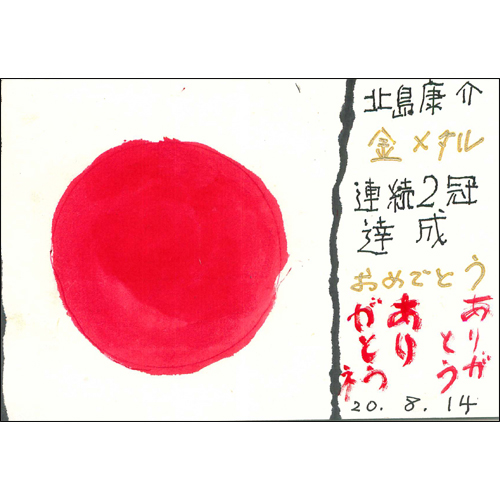 北島康介
金メタル
連続2冠
達成
おめでとう
ありがとう
ありがとうネ
20.8.14